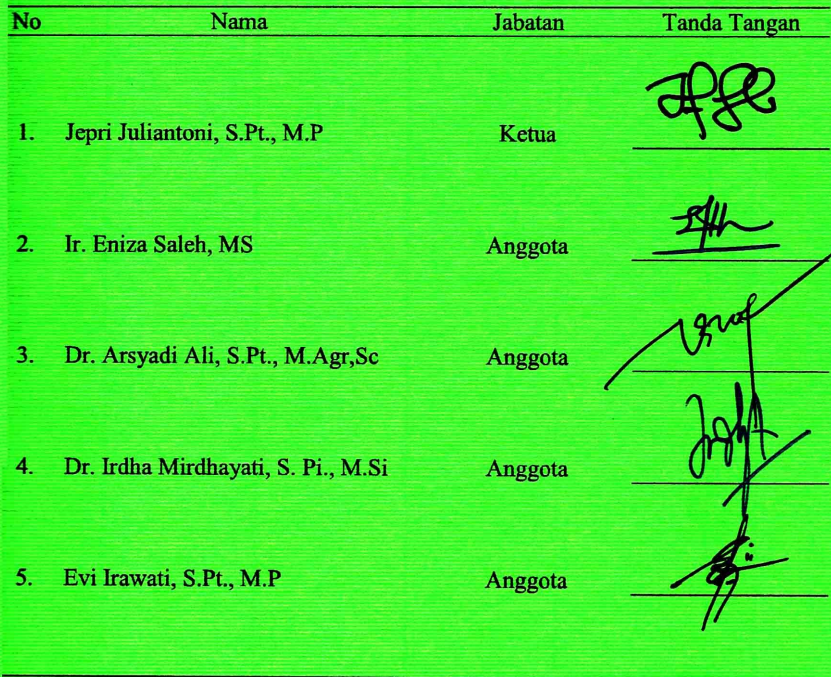 No Nama Jabatan Tanda Tangan
1. Jepri Juliantoni, S.Pt., M.P Ketua
2. Ir. Eniza Saleh, MS Anggota
3. Dr. Arsyadi Ali, S.Pt., M.Agr,Sc Anggota
4. Dr. Irdha Mirdhayati, S. Pi., M.Si Anggota
5. Evi Irawati, S.Pt., M.P Anggota